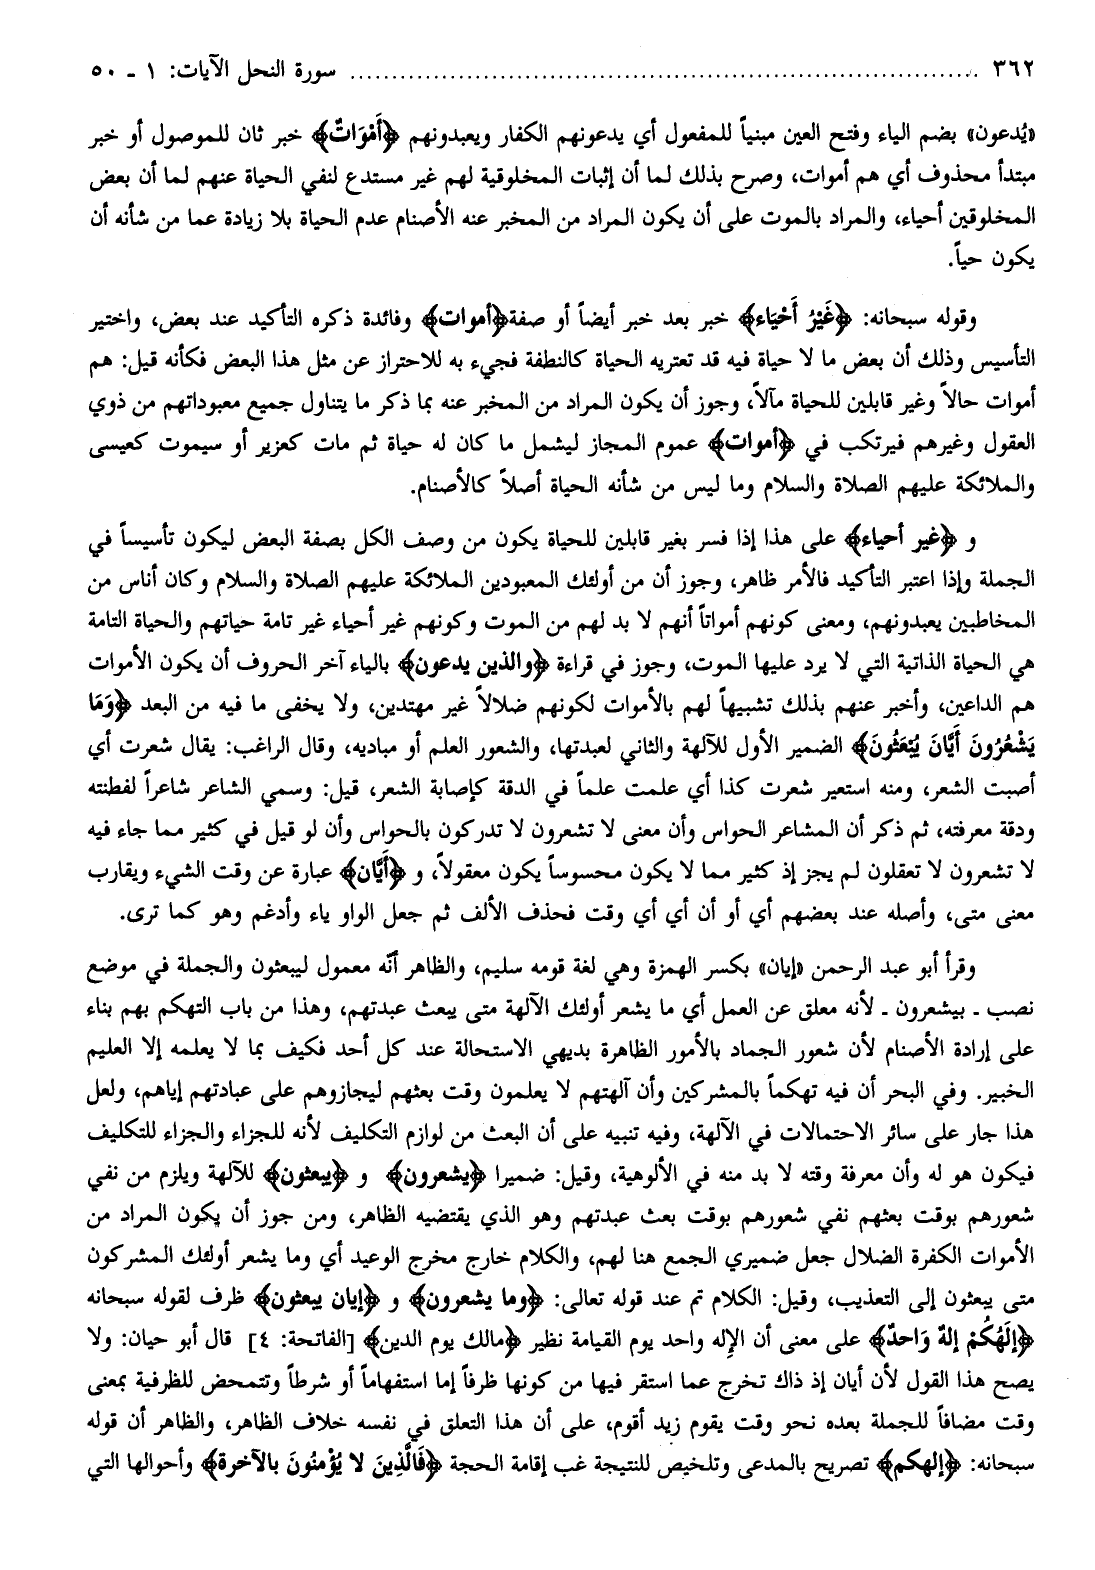 ٣٦٢ ........................................................................................ سورة النحل الآيات: ١ ـ ٥٠
«يُدعون» بضم الياء وفتح العين مبنياً للمفعول أي يدعونهم الكفار ويعبدونهم ﴿أَمْوَاتٌ﴾ خبر ثان للموصول أو خبر
مبتدأ محذوف أي هم أموات، وصرح بذلك لما أن إثبات المخلوقية لهم غير مستدع لنفي الحياة عنهم لما أن بعض
المخلوقين أحياء، والمراد بالموت على أن يكون المراد من المخبر عنه الأصنام عدم الحياة بلا زيادة عما من شأنه أن
يكون حياً.
وقوله سبحانه: ﴿غَيْرُ أَحْيَاء﴾ خبر بعد خبر أيضاً أو صفة﴿أموات﴾ وفائدة ذكره التأكيد عند بعض، واختير
التأسيس وذلك أن بعض ما لا حياة فيه قد تعتريه الحياة كالنطفة فجيء به للاحتراز عن مثل هذا البعض فكأنه قيل: هم
أموات حالاً وغير قابلين للحياة مآلاً، وجوز أن يكون المراد من المخبر عنه بما ذكر ما يتناول جميع معبوداتهم من ذوي
العقول وغيرهم فيرتكب في ﴿أموات﴾ عموم المجاز ليشمل ما كان له حياة ثم مات كعزير أو سيموت كعيسى
والملائكة عليهم الصلاة والسلام وما ليس من شأنه الحياة أصلاً كالأصنام.
و ﴿غير أحياء﴾ على هذا إذا فسر بغير قابلين للحياة يكون من وصف الكل بصفة البعض ليكون تأسيساً في
الجملة وإذا اعتبر التأكيد فالأمر ظاهر، وجوز أن من أولئك المعبودين الملائكة عليهم الصلاة والسلام وكان أناس من
المخاطبين يعبدونهم، ومعنى كونهم أمواتاً أنهم لا بد لهم من الموت وكونهم غير أحياء غير تامة حياتهم والحياة التامة
هي الحياة الذاتية التي لا يرد عليها الموت، وجوز في قراءة ﴿والذين يدعون﴾ بالياء آخر الحروف أن يكون الأموات
هم الداعين، وأخبر عنهم بذلك تشبيهاً لهم بالأموات لكونهم ضلالاً غير مهتدين، ولا يخفى ما فيه من البعد ﴿وَمَا
يَشْعُرُونَ أَيَّانَ يُبْعَثُونَ﴾ الضمير الأول للآلهة والثاني لعبدتها، والشعور العلم أو مباديه، وقال الراغب: يقال شعرت أي
أصبت الشعر، ومنه استعير شعرت كذا أي علمت علماً في الدقة كإصابة الشعر، قيل: وسمي الشاعر شاعراً لفطنته
ودقة معرفته، ثم ذكر أن المشاعر الحواس وأن معنى لا تشعرون لا تدركون بالحواس وأن لو قيل في كثير مما جاء فيه
لا تشعرون لا تعقلون لم يجز إذ كثير مما لا يكون محسوساً يكون معقولاً، و ﴿أَيَّان﴾ عبارة عن وقت الشيء ويقارب
معنى متى، وأصله عند بعضهم أي أو أن أي أي وقت فحذف الألف ثم جعل الواو ياء وأدغم وهو كما ترى.
وقرأ أبو عبد الرحمن «إيان» بكسر الهمزة وهي لغة قومه سليم، والظاهر أنّه معمول ليبعثون والجملة في موضع
نصب ـ بيشعرون ـ لأنه معلق عن العمل أي ما يشعر أولئك الآلهة متى يبعث عبدتهم، وهذا من باب التهكم بهم بناء
على إرادة الأصنام لأن شعور الجماد بالأمور الظاهرة بديهي الاستحالة عند كل أحد فكيف بما لا يعلمه إلا العليم
الخبير. وفي البحر أن فيه تهكماً بالمشركين وأن آلهتهم لا يعلمون وقت بعثهم ليجازوهم على عبادتهم إياهم، ولعل
هذا جار على سائر الاحتمالات في الآلهة، وفيه تنبيه على أن البعث من لوازم التكليف لأنه للجزاء والجزاء للتكليف
فيكون هو له وأن معرفة وقته لا بد منه في الألوهية، وقيل: ضميرا ﴿يشعرون﴾ و ﴿يبعثون﴾ للآلهة ويلزم من نفي
شعورهم بوقت بعثهم نفي شعورهم بوقت بعث عبدتهم وهو الذي يقتضيه الظاهر، ومن جوز أن يكون المراد من
الأموات الكفرة الضلال جعل ضميري الجمع هنا لهم، والكلام خارج مخرج الوعيد أي وما يشعر أولئك المشركون
متى يبعثون إلى التعذيب، وقيل: الكلام تم عند قوله تعالى: ﴿وما يشعرون﴾ و ﴿إيان يبعثون﴾ ظرف لقوله سبحانه
﴿إلَهُكُمْ إلهٌ وَاحدٌ﴾ على معنى أن الإله واحد يوم القيامة نظير ﴿مالك يوم الدين﴾ [الفاتحة: ٤] قال أبو حيان: ولا
يصح هذا القول لأن أيان إذ ذاك تخرج عما استقر فيها من كونها ظرفاً إما استفهاماً أو شرطاً وتتمحض للظرفية بمعنى
وقت مضافاً للجملة بعده نحو وقت يقوم زيد أقوم، على أن هذا التعلق في نفسه خلاف الظاهر، والظاهر أن قوله
سبحانه: ﴿إلهكم﴾ تصريح بالمدعى وتلخيص للنتيجة غب إقامة الحجة ﴿فَالَّذِينَ لا يُؤْمنُونَ بالآخرة﴾ وأحوالها التي